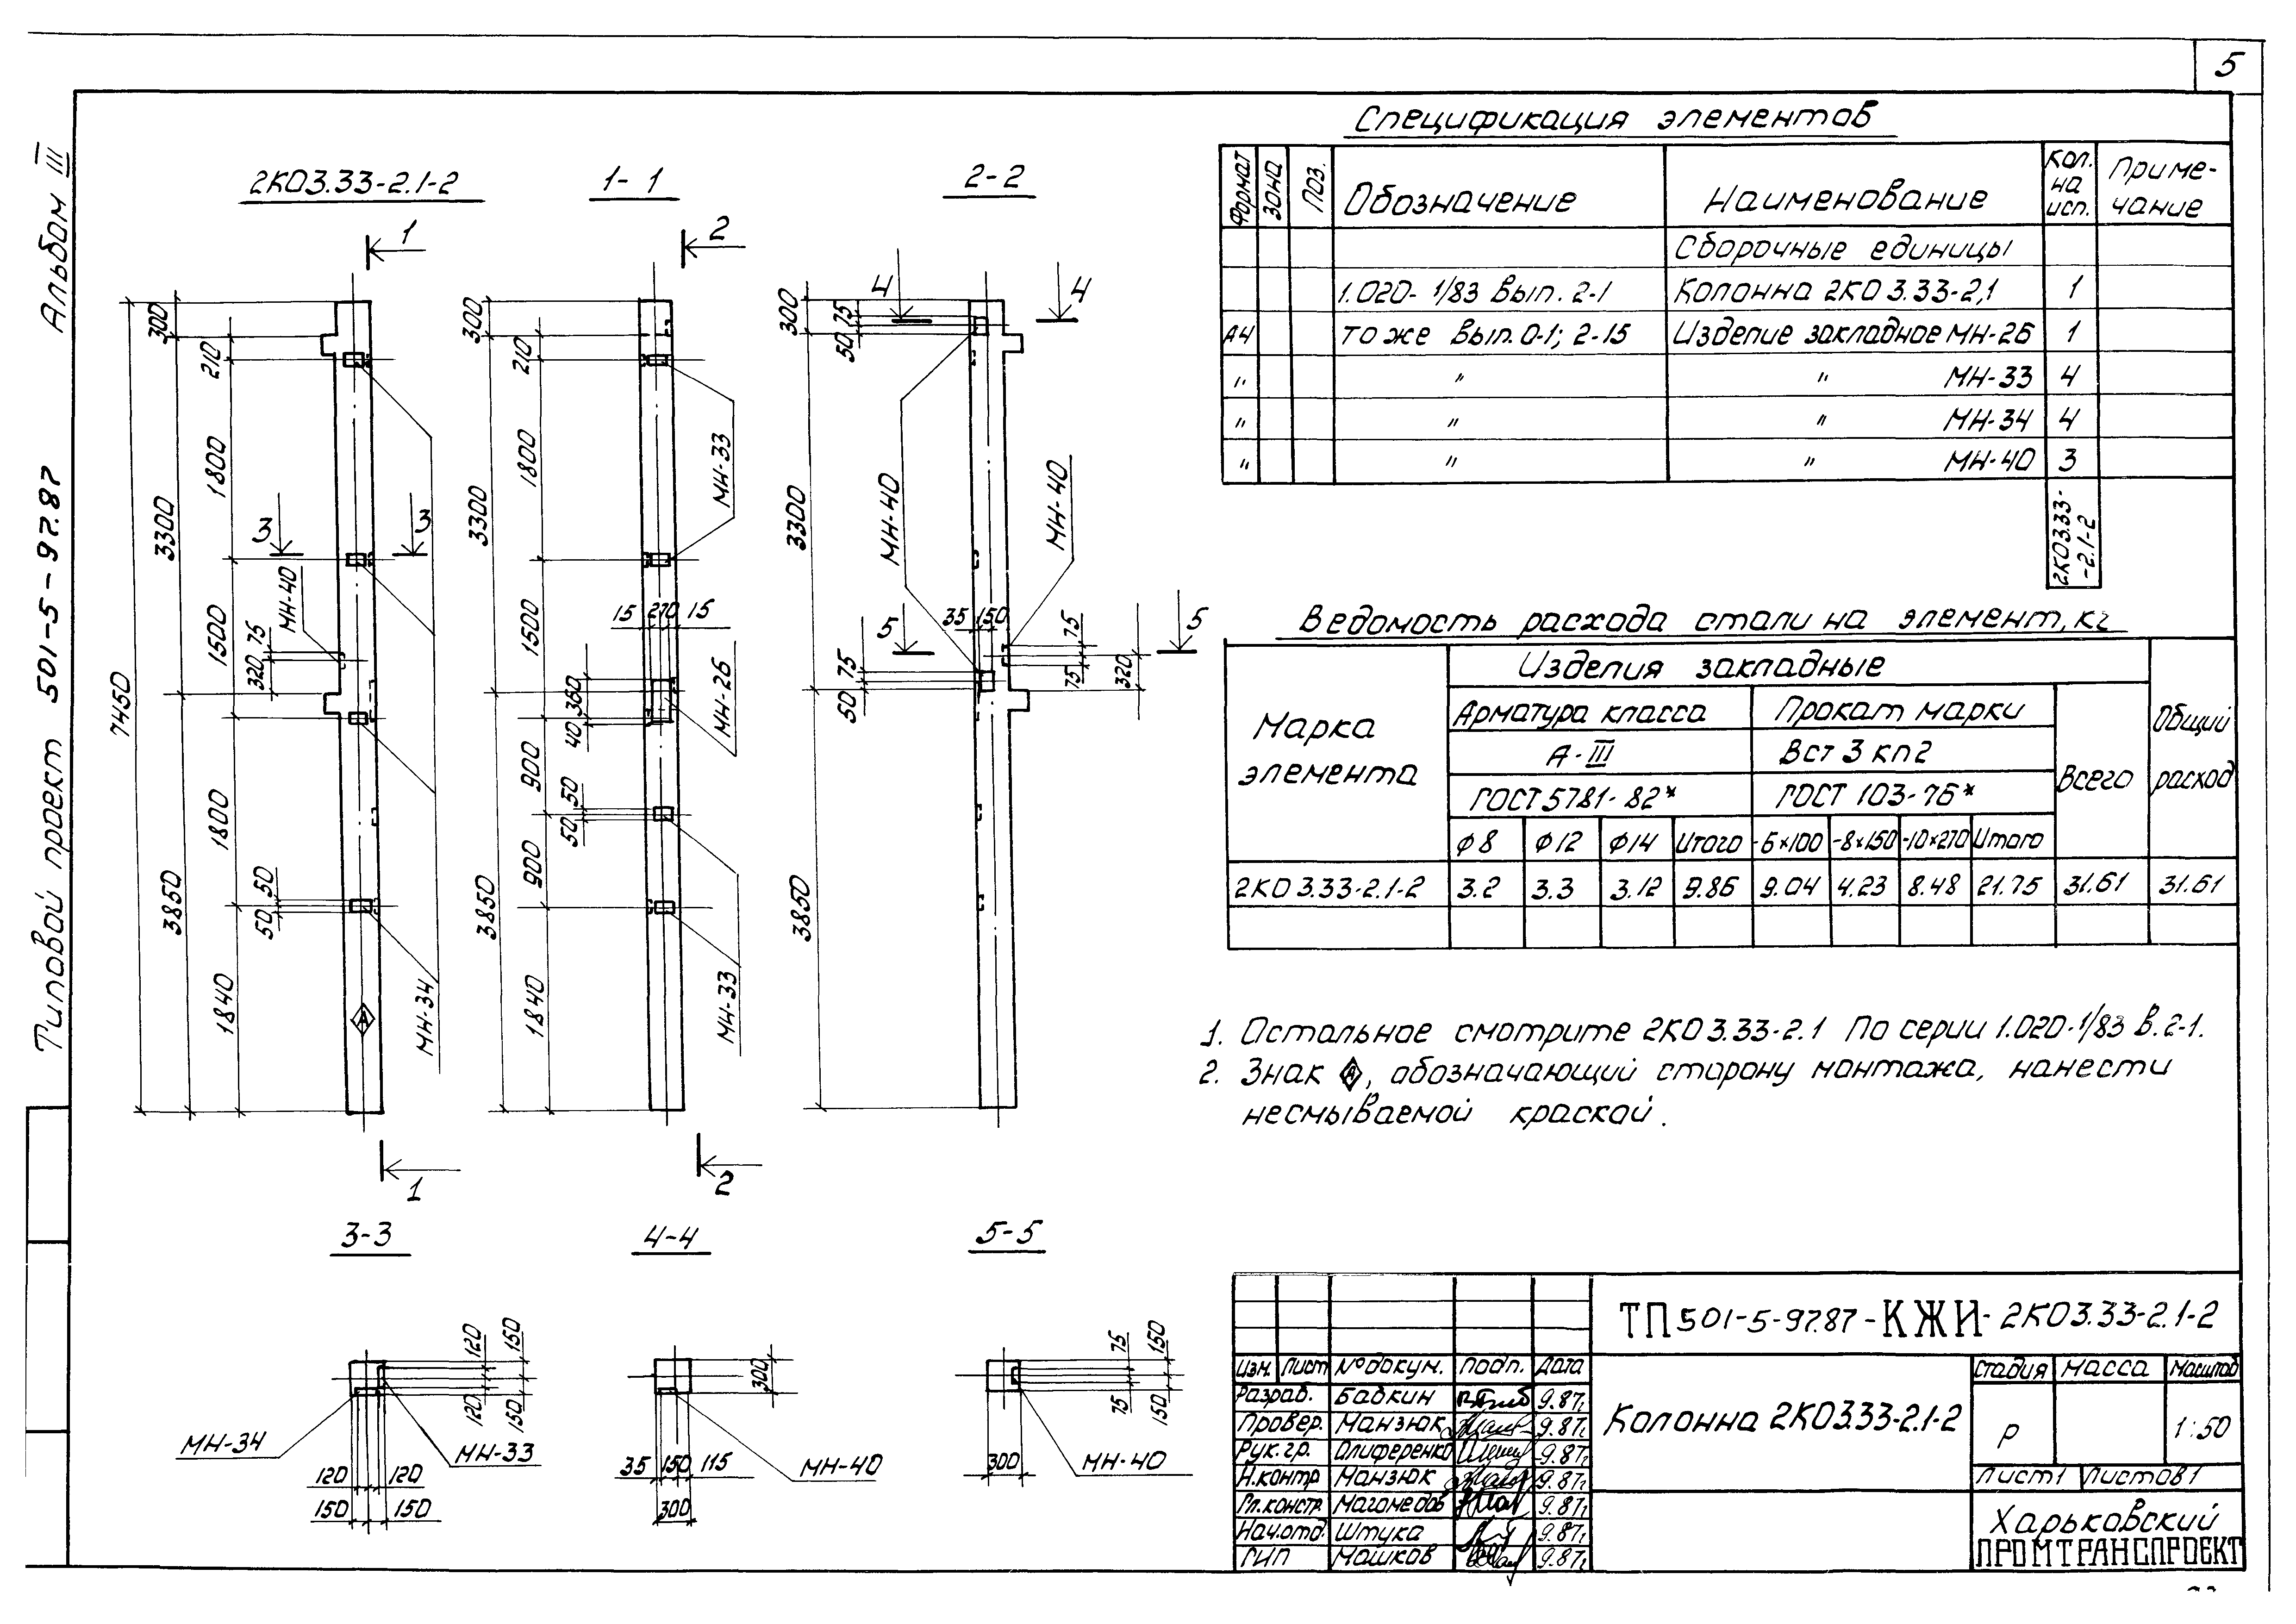 5
Альбом III
Типовой проект 501-5-97.87
2КО3.33-2.1-2
1-1
2-2
1
2
4
4
300
210
1800
1500
1800
1840
3300
3850
7450
3
3
МН-40
75
320
50
50
МН-34
А
1
300
210
1800
1500
900
900
1840
3300
3850
15 270 15
360
40
50
50
МН-33
МН-26
МН-33
2
300
75
50
3300
3850
МН-40
МН-40
35 150
5
5
75
50
75
75
320
3-3
4-4
5-5
МН-34
МН-33
120
150
120
150
120 120
150 150
300
35 150 115
300
МН-40
75
150
75
150
300
МН-40
Спецификация элементов
Формат Зона Поз. Обозначение Наименование Кол. на исп. Приме-чание
Сборочные единицы
1.020-1/83 Вып. 2-1 Колонна 2КО3.33-2,1 1
А4 то же Вып. 0-1; 2-15 Изделие закладное МН-26 1
" " " МН-33 4
" " " МН-34 4
" " " МН-40 3
2КО3.33-
-2.1-2
Ведомость расхода стали на элемент, кг
Марка элемента
Изделия закладные
Общий расход
Арматура класса Прокат марки
Всего
А-III Вст 3 кп2
ГОСТ 5781-82* ГОСТ 103-76*
φ8 φ12 φ14 Итого -6×100 -8×150 -10×270 Итого
2КО3.33-2.1-2 3.2 3.3 3.12 9.86 9.04 4.23 8.48 21.75 31.61 31.61
1. Остальное смотрите 2КО3.33-2.1 По серии 1.020-1/83 В.2-1.
2. Знак А, обозначающий сторону монтажа, нанести
несмываемой краской.
ТП 501-5-97.87-КЖИ-2КО3.33-2.1-2
Изм. Лист № докум. Подп. Дата
Разраб. Бабкин 9.87г.
Провер. Манзюк 9.87г.
Рук.гр. Олиференко 9.87г.
Н.контр Манзюк 9.87г.
Гл.констр. Магомедов 9.87г.
Нач.отд. Штука 9.87г.
ГИП Машков 9.87г.
Колонна 2КО3.33-2.1-2
Стадия Масса Масштаб
Р 1:50
Лист 1 Листов 1
Харьковский
ПРОМТРАНСПРОЕКТ